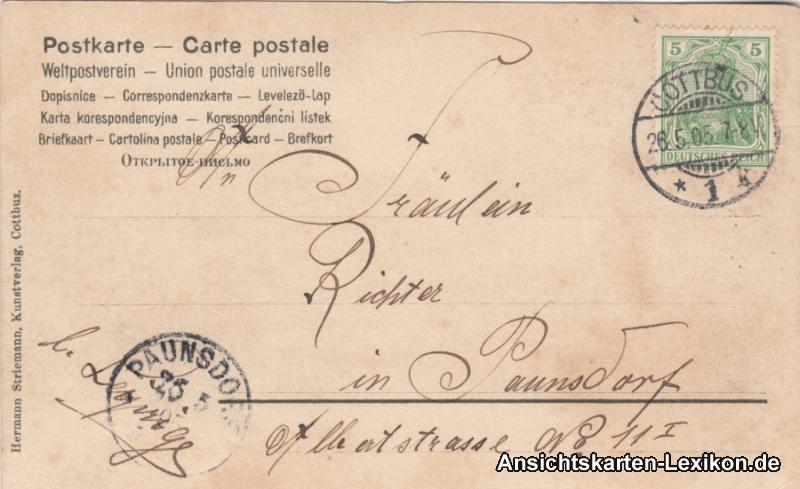 Postkarte — Carte postale
Weltpostverein — Union postale universelle
Dopisnice — Correspondenzkarte — Levelező-Lap
Karta korespondencyjna — Korespondenčni listek
Briefkaart — Cartolina postale — Postcard — Brefkort
Открытое письмо
5 5
DEUTSCHES REICH
COTTBUS
26.5.05. 7-8V
* 1 k
An
Fräulein
Richter
in Paunsdorf
b. Leipzig
Albertstrasse No 11 I
PAUNSDORF
25 5
Hermann Striemann, Kunstverlag, Cottbus.
Ansichtskarten-Lexikon.de